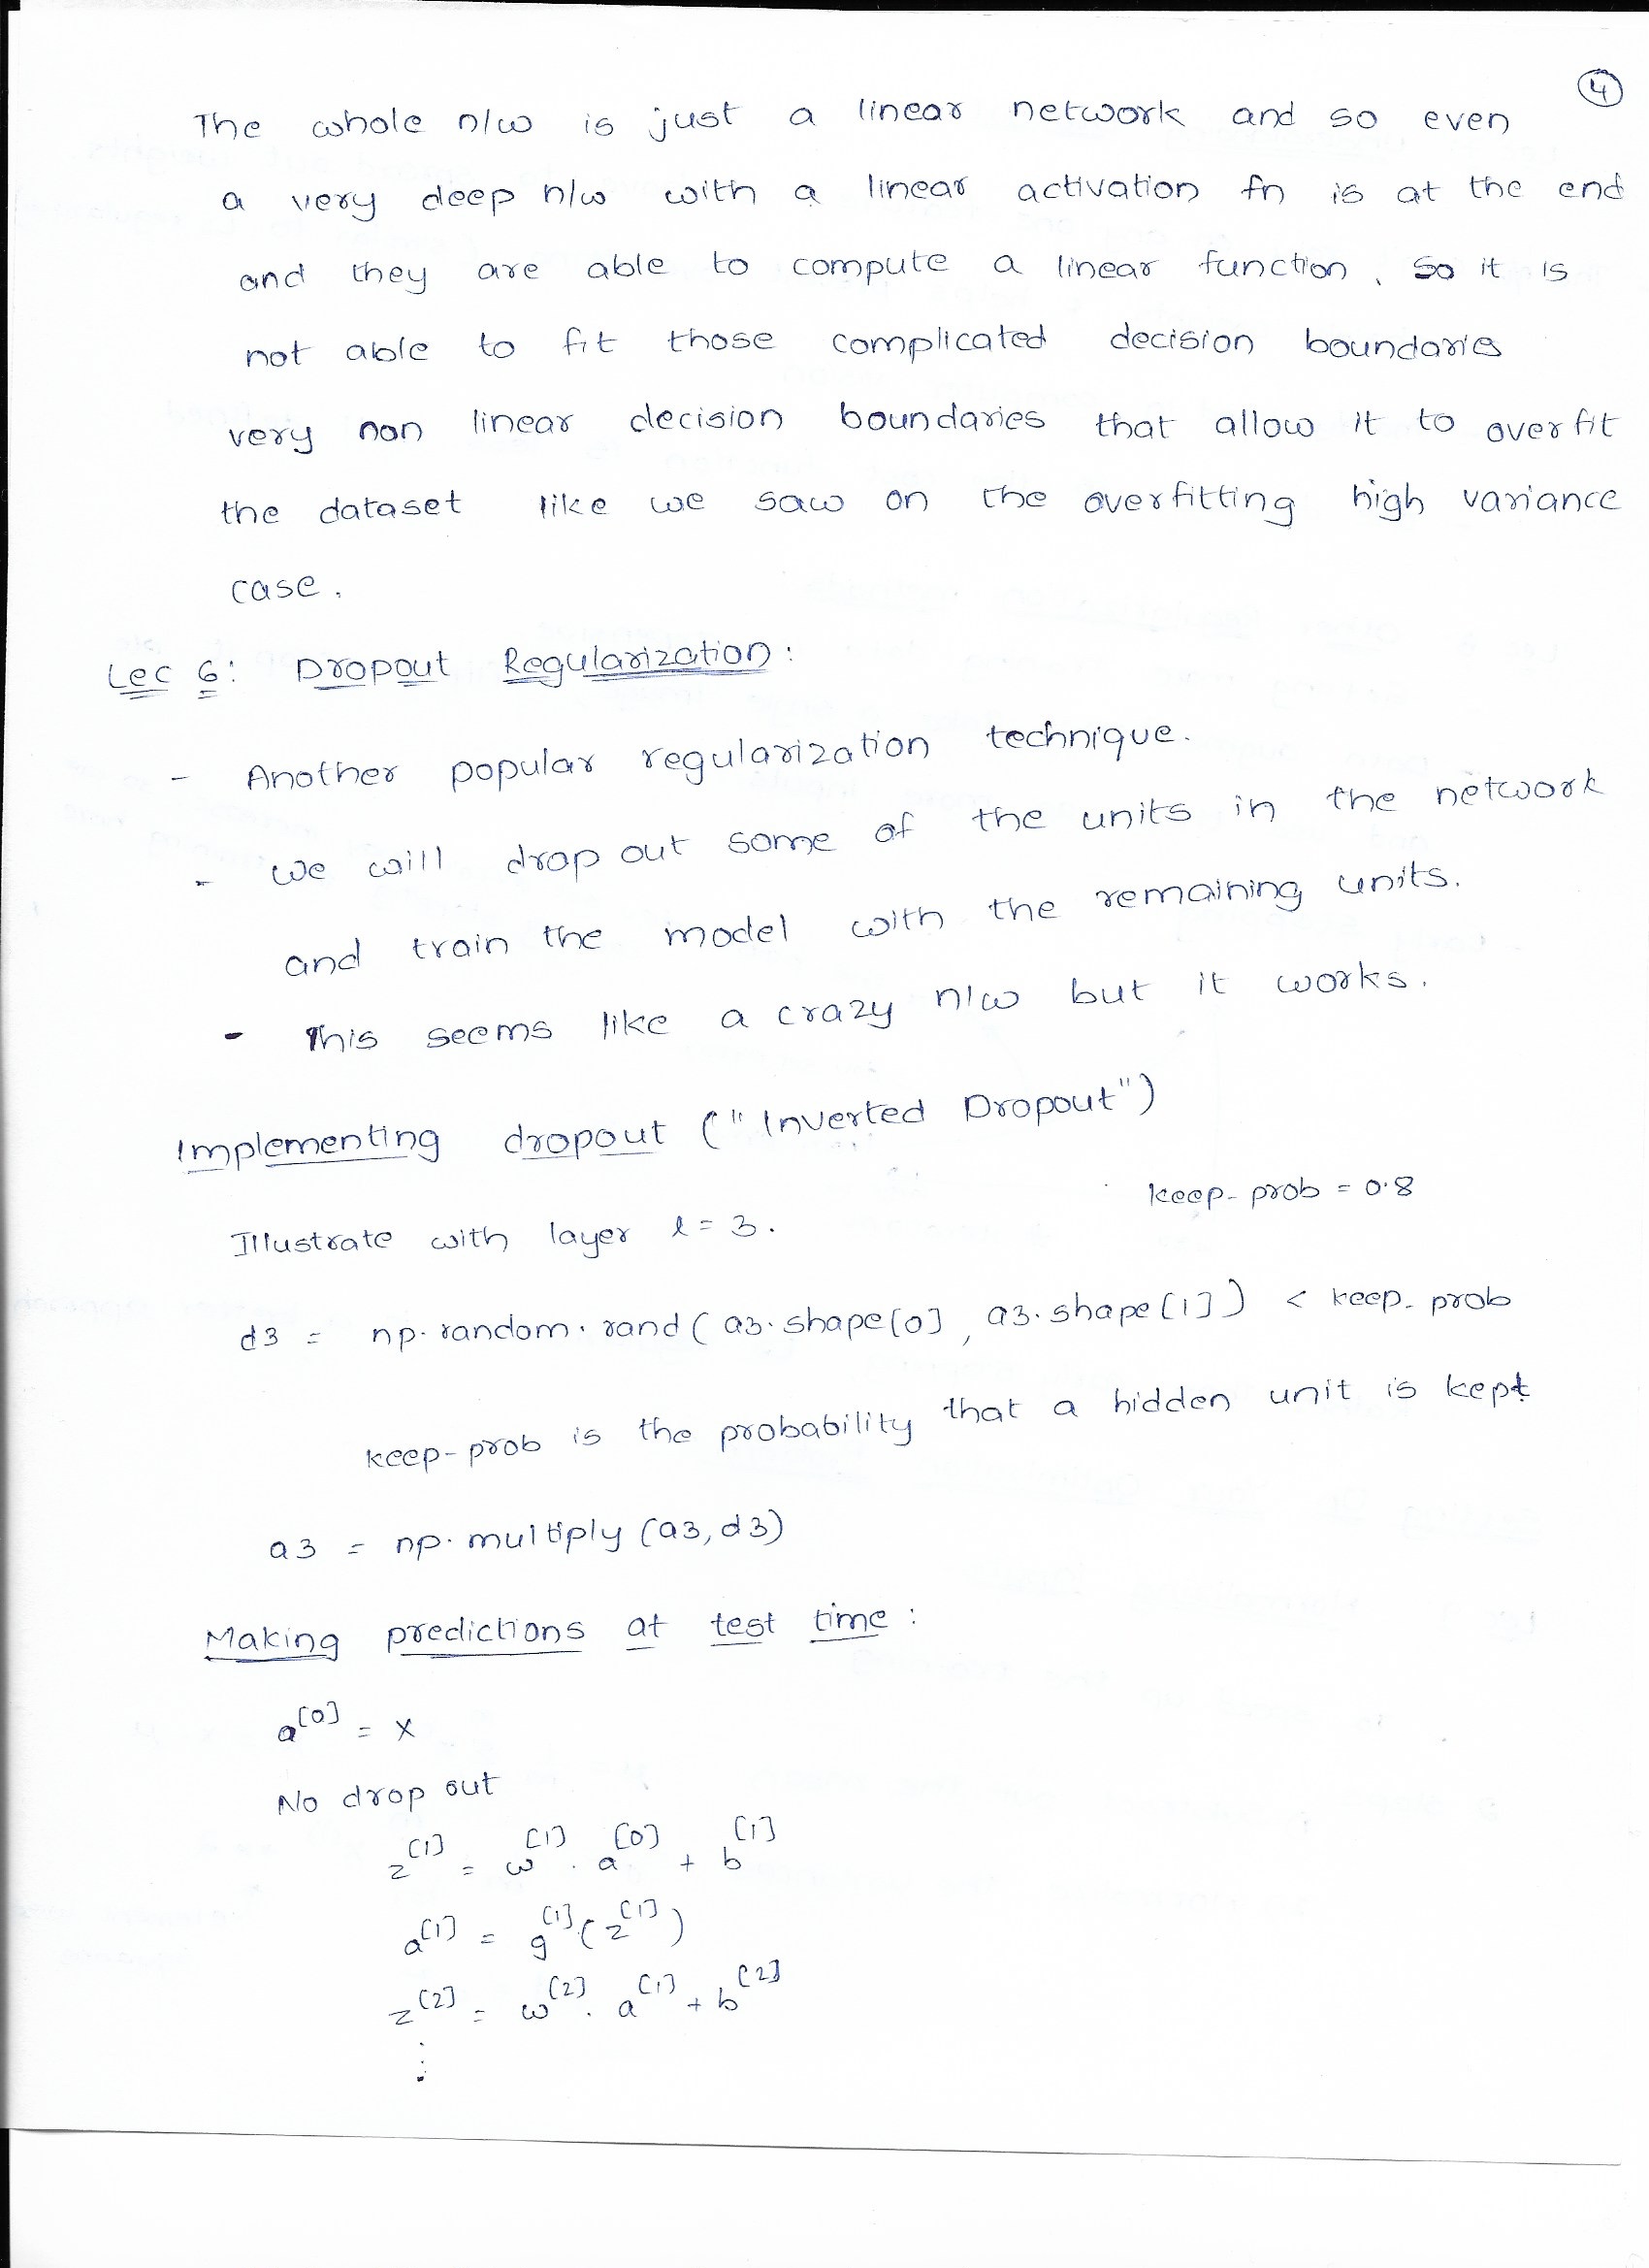 4
The whole n/w is just a linear network and so even
a very deep n/w with a linear activation fn is at the end
and they are able to compute a linear function. So it is
not able to fit those complicated decision boundaries
very non linear decision boundaries that allow it to overfit
the dataset like we saw on the overfitting high variance
case.
Lec 6: Dropout Regularization:
- Another popular regularization technique.
- We will drop out some of the units in the network
and train the model with the remaining units.
- This seems like a crazy n/w but it works.
Implementing dropout ("Inverted Dropout")
keep-prob = 0.8
Illustrate with layer l = 3.
d3 = np.random.rand(a3.shape[0], a3.shape[1]) < keep_prob
keep-prob is the probability that a hidden unit is kept
a3 = np.multiply(a3, d3)
Making predictions at test time:
a^[0] = x
No drop out
z^[1] = w^[1] . a^[0] + b^[1]
a^[1] = g^[1](z^[1])
z^[2] = w^[2] . a^[1] + b^[2]
⋮